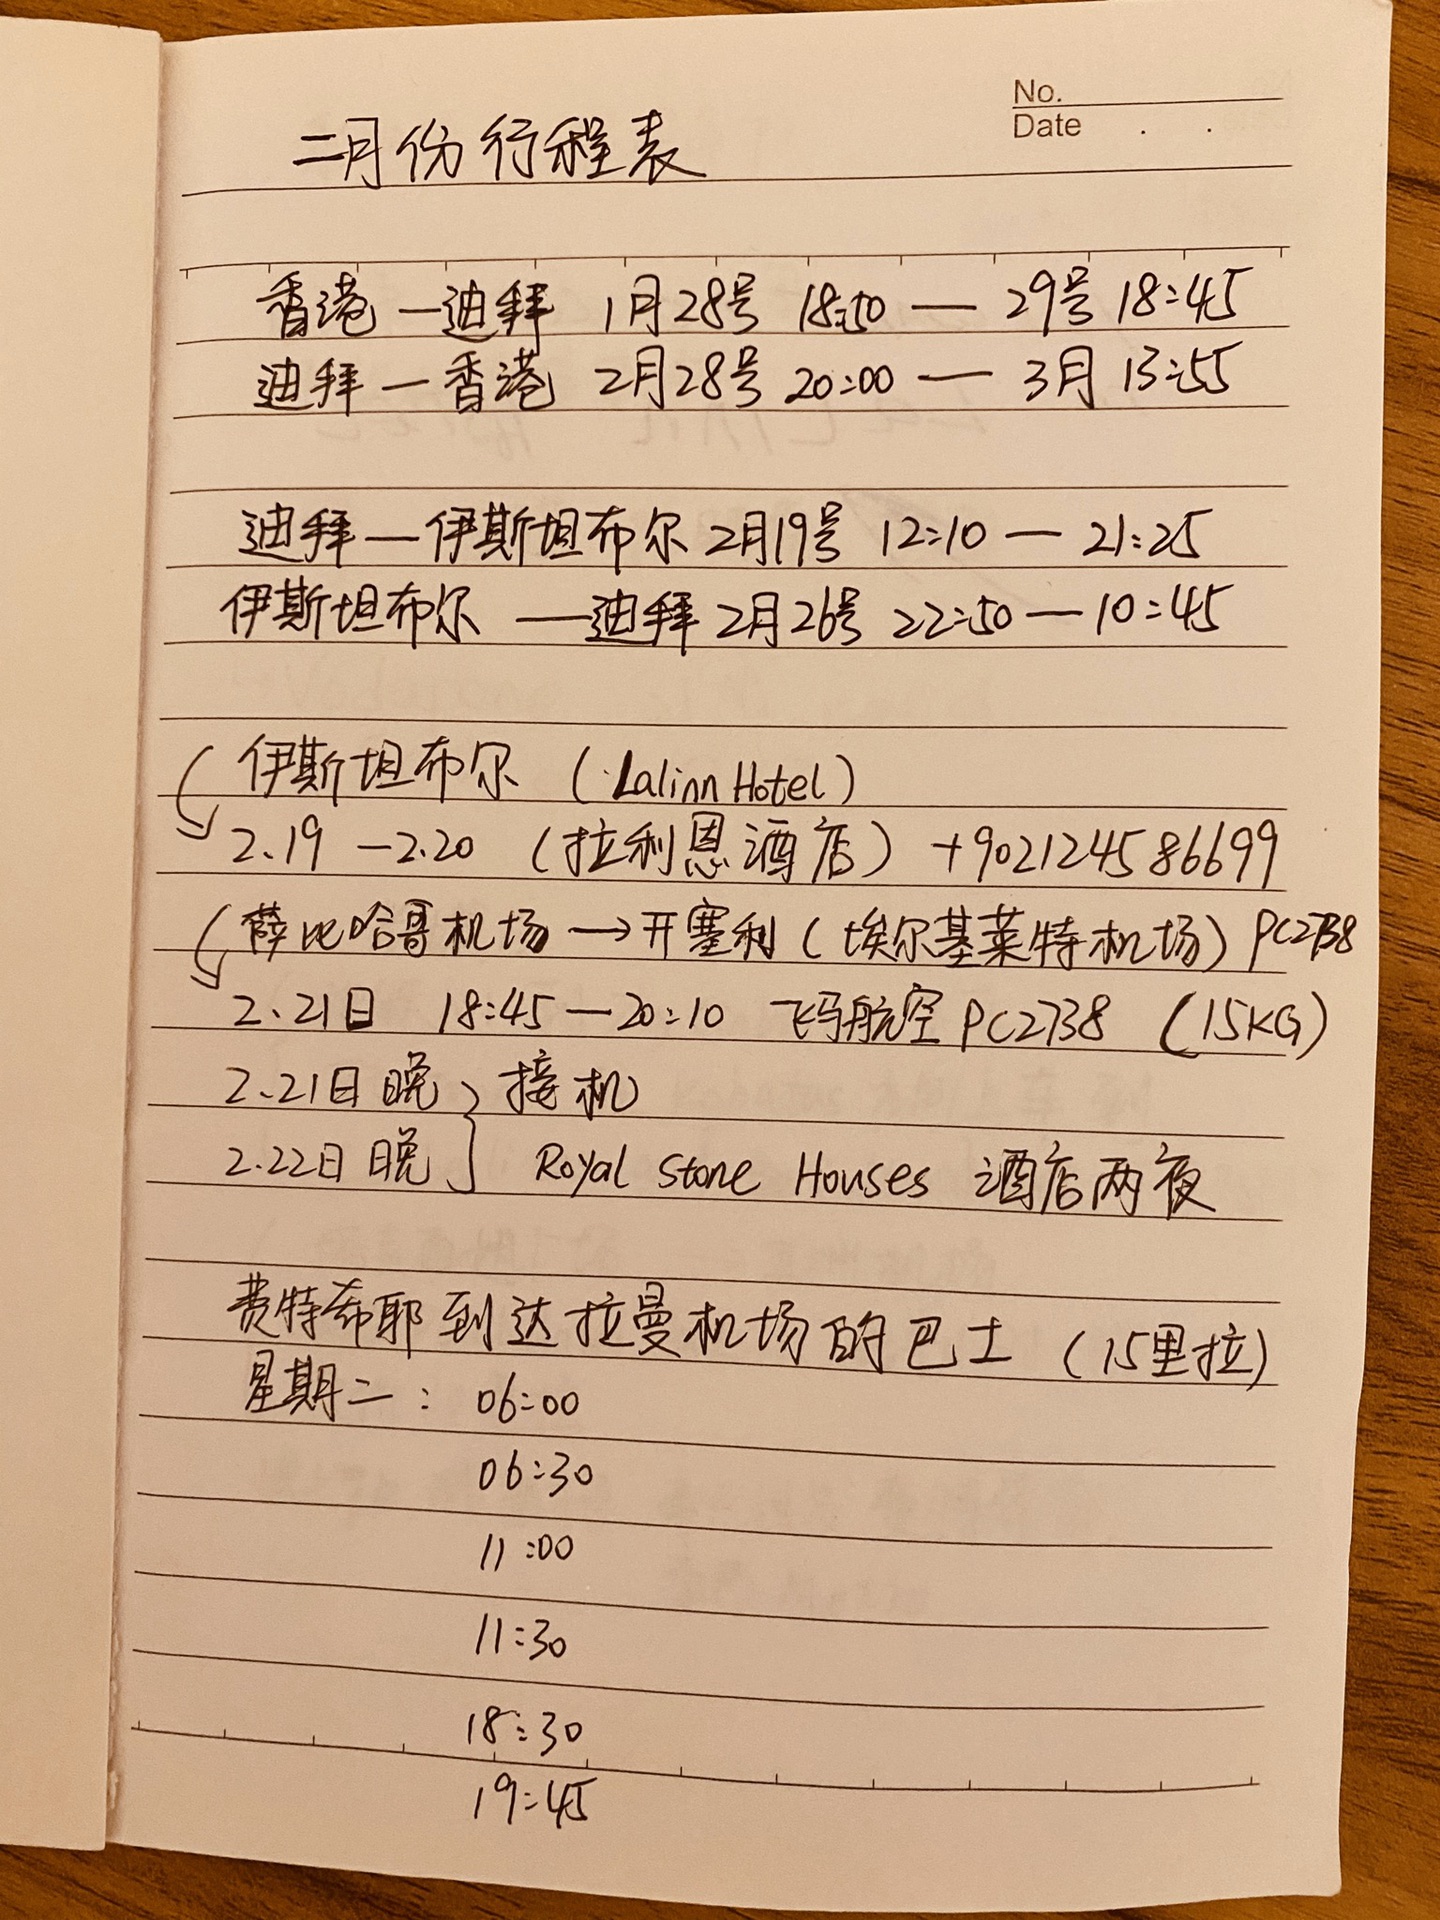 No.
Date . .
二月份行程表
香港—迪拜 1月28号 18:50 — 29号 18:45
迪拜—香港 2月28号 20:00 — 3月 13:55
迪拜—伊斯坦布尔 2月19号 12:10 — 21:25
伊斯坦布尔 —迪拜 2月26号 22:50—10:45
伊斯坦布尔 (Lalinn Hotel)
2.19 —2.20 (拉利恩酒店) +902124586699
萨比哈哥机场→开塞利(埃尔基莱特机场) PC2738
2.21日 18:45—20:10 飞马航空 PC2738 (15KG)
2.21日晚 } 接机
2.22日晚 } Royal Stone Houses 酒店两夜
费特希耶到达拉曼机场的巴士 (15里拉)
星期二: 06:00
06:30
11:00
11:30
18:30
19:45